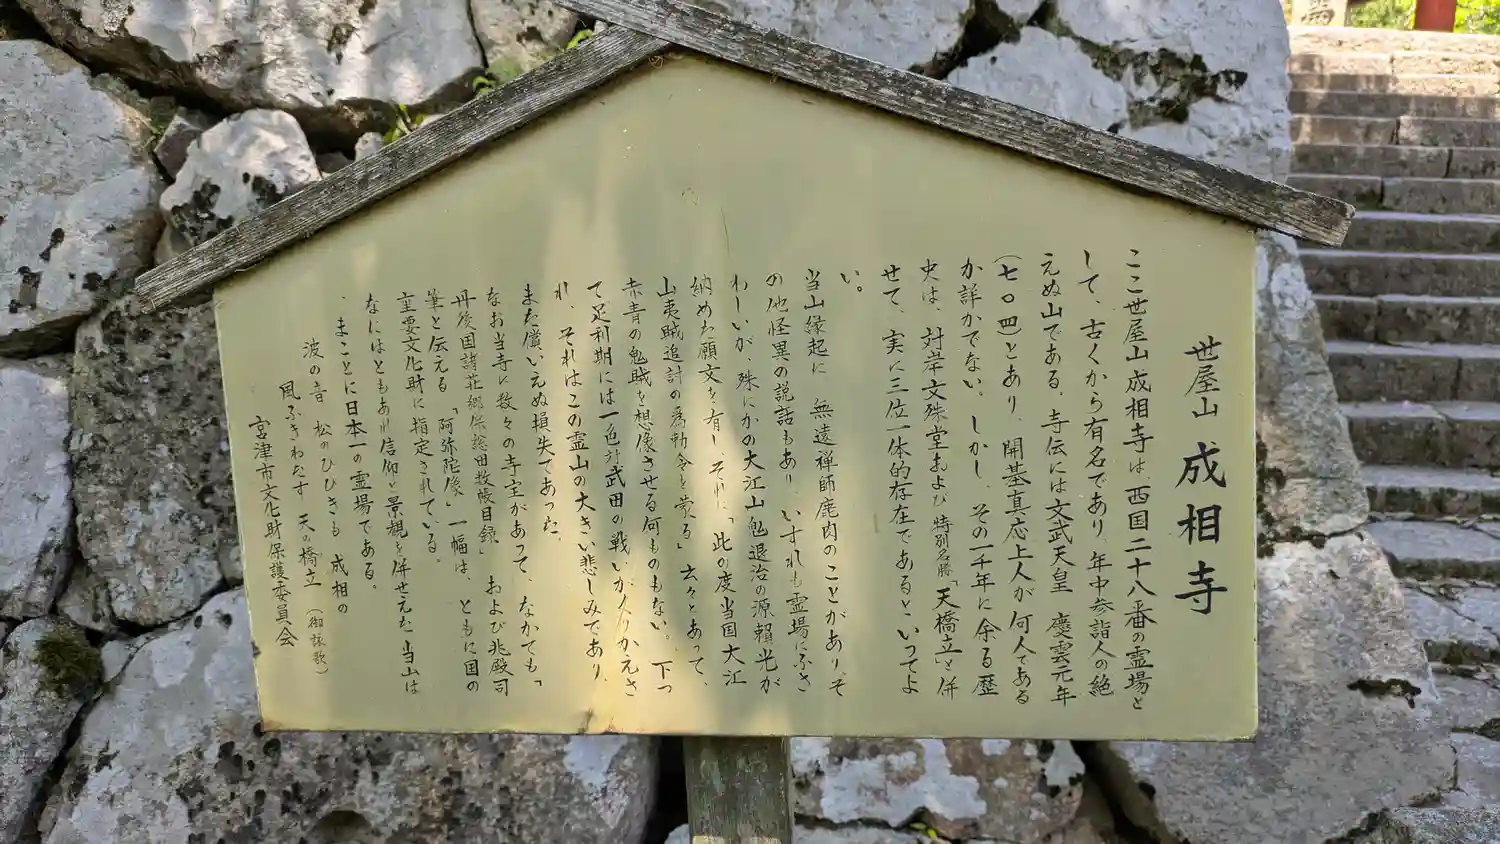 世屋山 成相寺
ここ世屋山成相寺は、西国二十八番の霊場と
して、古くから有名であり、年中参詣人の絶
えぬ山である。寺伝には文武天皇 慶雲元年
(七〇四)とあり、開基真応上人が何人である
か詳かでない。しかし、その一千年に余る歴
史は、対岸文殊堂および特別名勝「天橋立」と併
せて、実に三位一体的存在であるといってよ
い。
当山縁起に 無遠禅師鹿肉のことがあり、そ
の他怪異の説話もあり、いずれも霊場にふさ
わしいが、殊にかの大江山鬼退治の源頼光が
納めた願文を有し、それに「此の度当国大江
山夷賊追討の為勅令を蒙る」云々とあって、
赤青の鬼賊を想像させる何ものもない。下っ
て足利期には一色対武田の戦いがくりかえさ
れ、それはこの霊山の大きい悲しみであり、
また償いえぬ損失であった。
なお当寺に数々の寺宝があって、なかでも「
丹後国諸荘郷保総田数帳目録」 および兆殿司
筆と伝える「阿弥陀像」一幅は、ともに国の
重要文化財に指定されている。
なにはともあれ信仰と景観を併せえた当山は
、まことに日本一の霊場である。
波の音 松のひびきも 成相の
風ふきわたす 天の橋立 (御詠歌)
宮津市文化財保護委員会